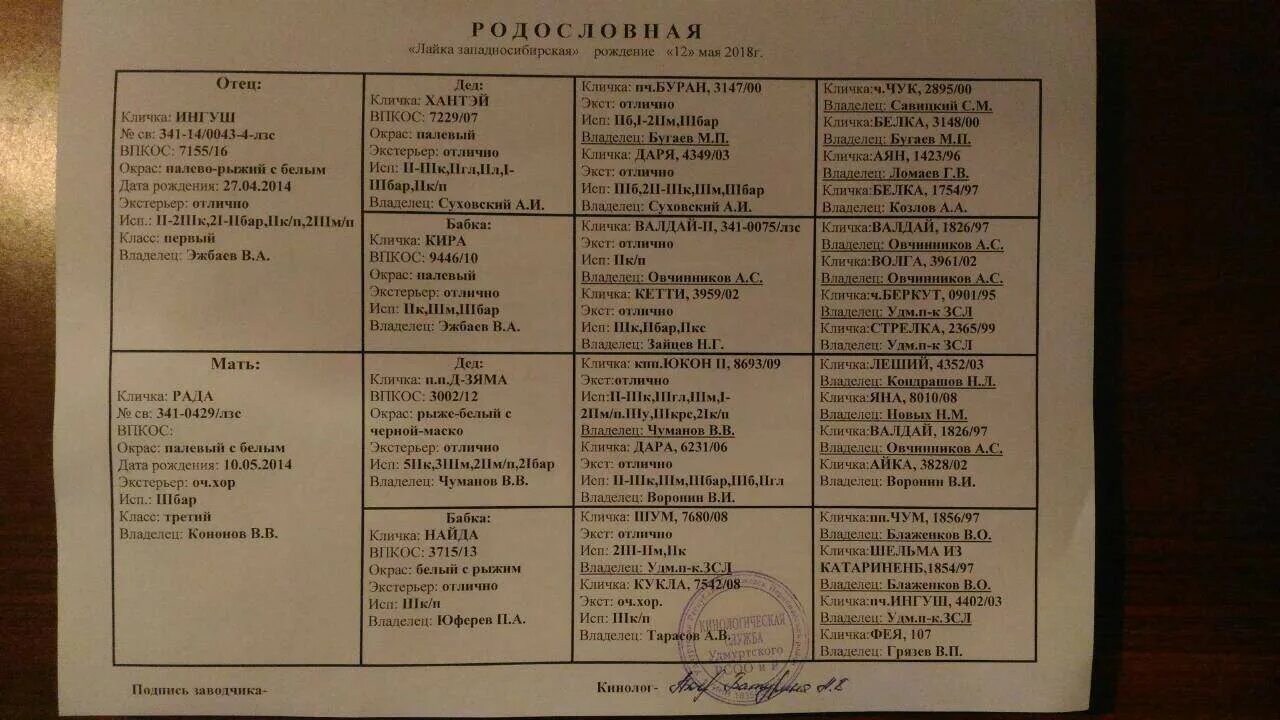 РОДОСЛОВНАЯ
«Лайка западносибирская» рождение «12» мая 2018г.
Отец:
Кличка: ИНГУШ
№ св: 341-14/0043-4-лзс
ВПКОС: 7155/16
Окрас: палево-рыжий с белым
Дата рождения: 27.04.2014
Экстерьер: отлично
Исп.: II-2IIIк,2I-IIбар,IIк/п,2IIIм/п
Класс: первый
Владелец: Эжбаев В.А.
Дед:
Кличка: ХАНТЭЙ
ВПКОС: 7229/07
Окрас: палевый
Экстерьер: отлично
Исп: II-IIIк,IIгл,IIл,I-
IIIбар,IIк/п
Владелец: Суховский А.И.
Бабка:
Кличка: КИРА
ВПКОС: 9446/10
Окрас: палевый
Экстерьер: отлично
Исп: IIк,IIIм,IIIбар
Владелец: Эжбаев В.А.
Кличка: пч.БУРАН, 3147/00
Экст: отлично
Исп: IIб,I-2IIм,IIIбар
Владелец: Бугаев М.П.
Кличка: ДАРЯ, 4349/03
Экст: отлично
Исп: IIIб,2II-IIIк,IIIм,IIIбар
Владелец: Суховский А.И.
Кличка: ВАЛДАЙ-II, 341-0075/лзс
Экст: отлично
Исп: IIк/п
Владелец: Овчинников А.С.
Кличка: КЕТТИ, 3959/02
Экст: отлично
Исп: IIIк,IIбар,IIкс
Владелец: Зайцев Н.Г.
Кличка:ч.ЧУК, 2895/00
Владелец: Савицкий С.М.
Кличка:БЕЛКА, 3148/00
Владелец: Бугаев М.П.
Кличка:АЯН, 1423/96
Владелец: Ломаев Г.В.
Кличка:БЕЛКА, 1754/97
Владелец: Козлов А.А.
Кличка:ВАЛДАЙ, 1826/97
Владелец: Овчинников А.С.
Кличка:ВОЛГА, 3961/02
Владелец: Овчинников А.С.
Кличка:ч.БЕРКУТ, 0901/95
Владелец: Удм.п-к ЗСЛ
Кличка:СТРЕЛКА, 2365/99
Владелец: Удм.п-к ЗСЛ
Мать:
Кличка: РАДА
№ св: 341-0429/лзс
ВПКОС:
Окрас: палевый с белым
Дата рождения: 10.05.2014
Экстерьер: оч.хор
Исп.: IIIбар
Класс: третий
Владелец: Кононов В.В.
Дед:
Кличка: п.п.Д-ЗЯМА
ВПКОС: 3002/12
Окрас: рыже-белый с
черной-маско
Экстерьер: отлично
Исп: 5IIк,3IIIм,2IIм/п,2Iбар
Владелец: Чуманов В.В.
Бабка:
Кличка: НАЙДА
ВПКОС: 3715/13
Окрас: белый с рыжим
Экстерьер: отлично
Исп: IIIк/п
Владелец: Юферев П.А.
Кличка: кпп.ЮКОН II, 8693/09
Экст:отлично
Исп:II-IIIк,IIIгл,IIIм,I-
2IIм/п.IIIу,IIIкрс,2Iк/п
Владелец: Чуманов В.В.
Кличка: ДАРА, 6231/06
Экст: отлично
Исп: II-IIIк,IIIм,IIIбар,IIIб,IIгл
Владелец: Воронин В.И.
Кличка: ШУМ, 7680/08
Экст: отлично
Исп: 2III-IIм,IIк
Владелец: Удм.п-к.ЗСЛ
Кличка: КУКЛА, 7542/08
Экст: оч.хор.
Исп: IIIк/п
Владелец: Тарасов А.В.
Кличка:ЛЕШИЙ, 4352/03
Владелец: Кондрашов Н.Л.
Кличка:ЯНА, 8010/08
Владелец: Новых Н.М.
Кличка:ВАЛДАЙ, 1826/97
Владелец: Овчинников А.С.
Кличка:АЙКА, 3828/02
Владелец: Воронин В.И.
Кличка:пп.ЧУМ, 1856/97
Владелец: Блаженков В.О.
Кличка:ШЕЛЬМА ИЗ
КАТАРИНЕНБ,1854/97
Владелец: Блаженков В.О.
Кличка:пч.ИНГУШ, 4402/03
Владелец: Удм.п-к.ЗСЛ
Кличка:ФЕЯ, 107
Владелец: Грязев В.П.
КИНОЛОГИЧЕСКАЯ
СЛУЖБА
Удмуртского
РСОО
Подпись заводчика-
Кинолог-